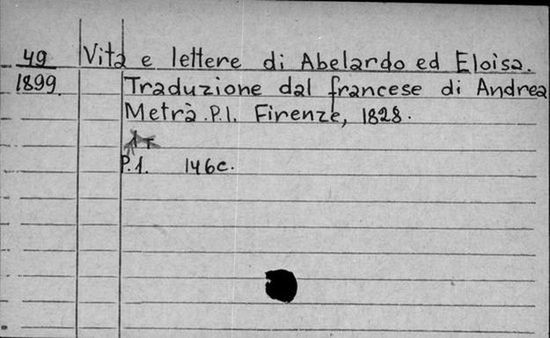 49 Vita e lettere di Abelardo ed Eloisa.
1899. Traduzione dal francese di Andrea
Metrà. P.1. Firenze, 1828.
P.1. 146c.